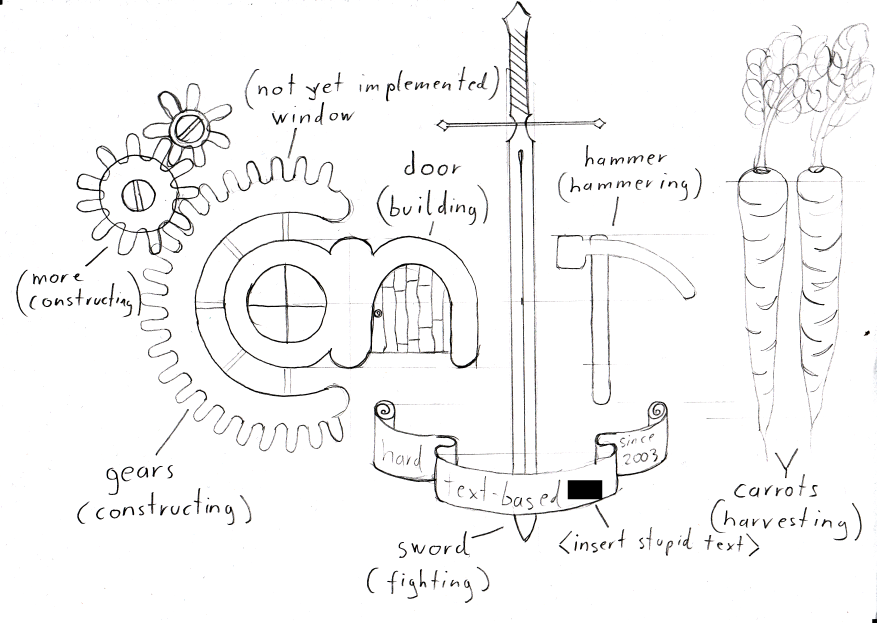 (not yet implemented)
window
door
(building)
hammer
(hammering)
(more
constructing)
can
hard
since
2003
text-based
gears
(constructing)
carrots
(harvesting)
sword
(fighting)
<insert stupid text>